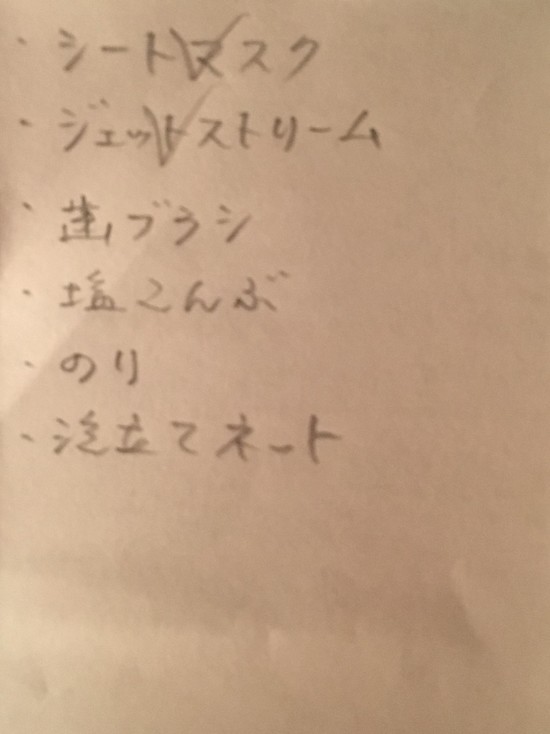 ・シートマスク
・ジェットストリーム
・歯ブラシ
・塩こんぶ
・のり
・泡立てネット